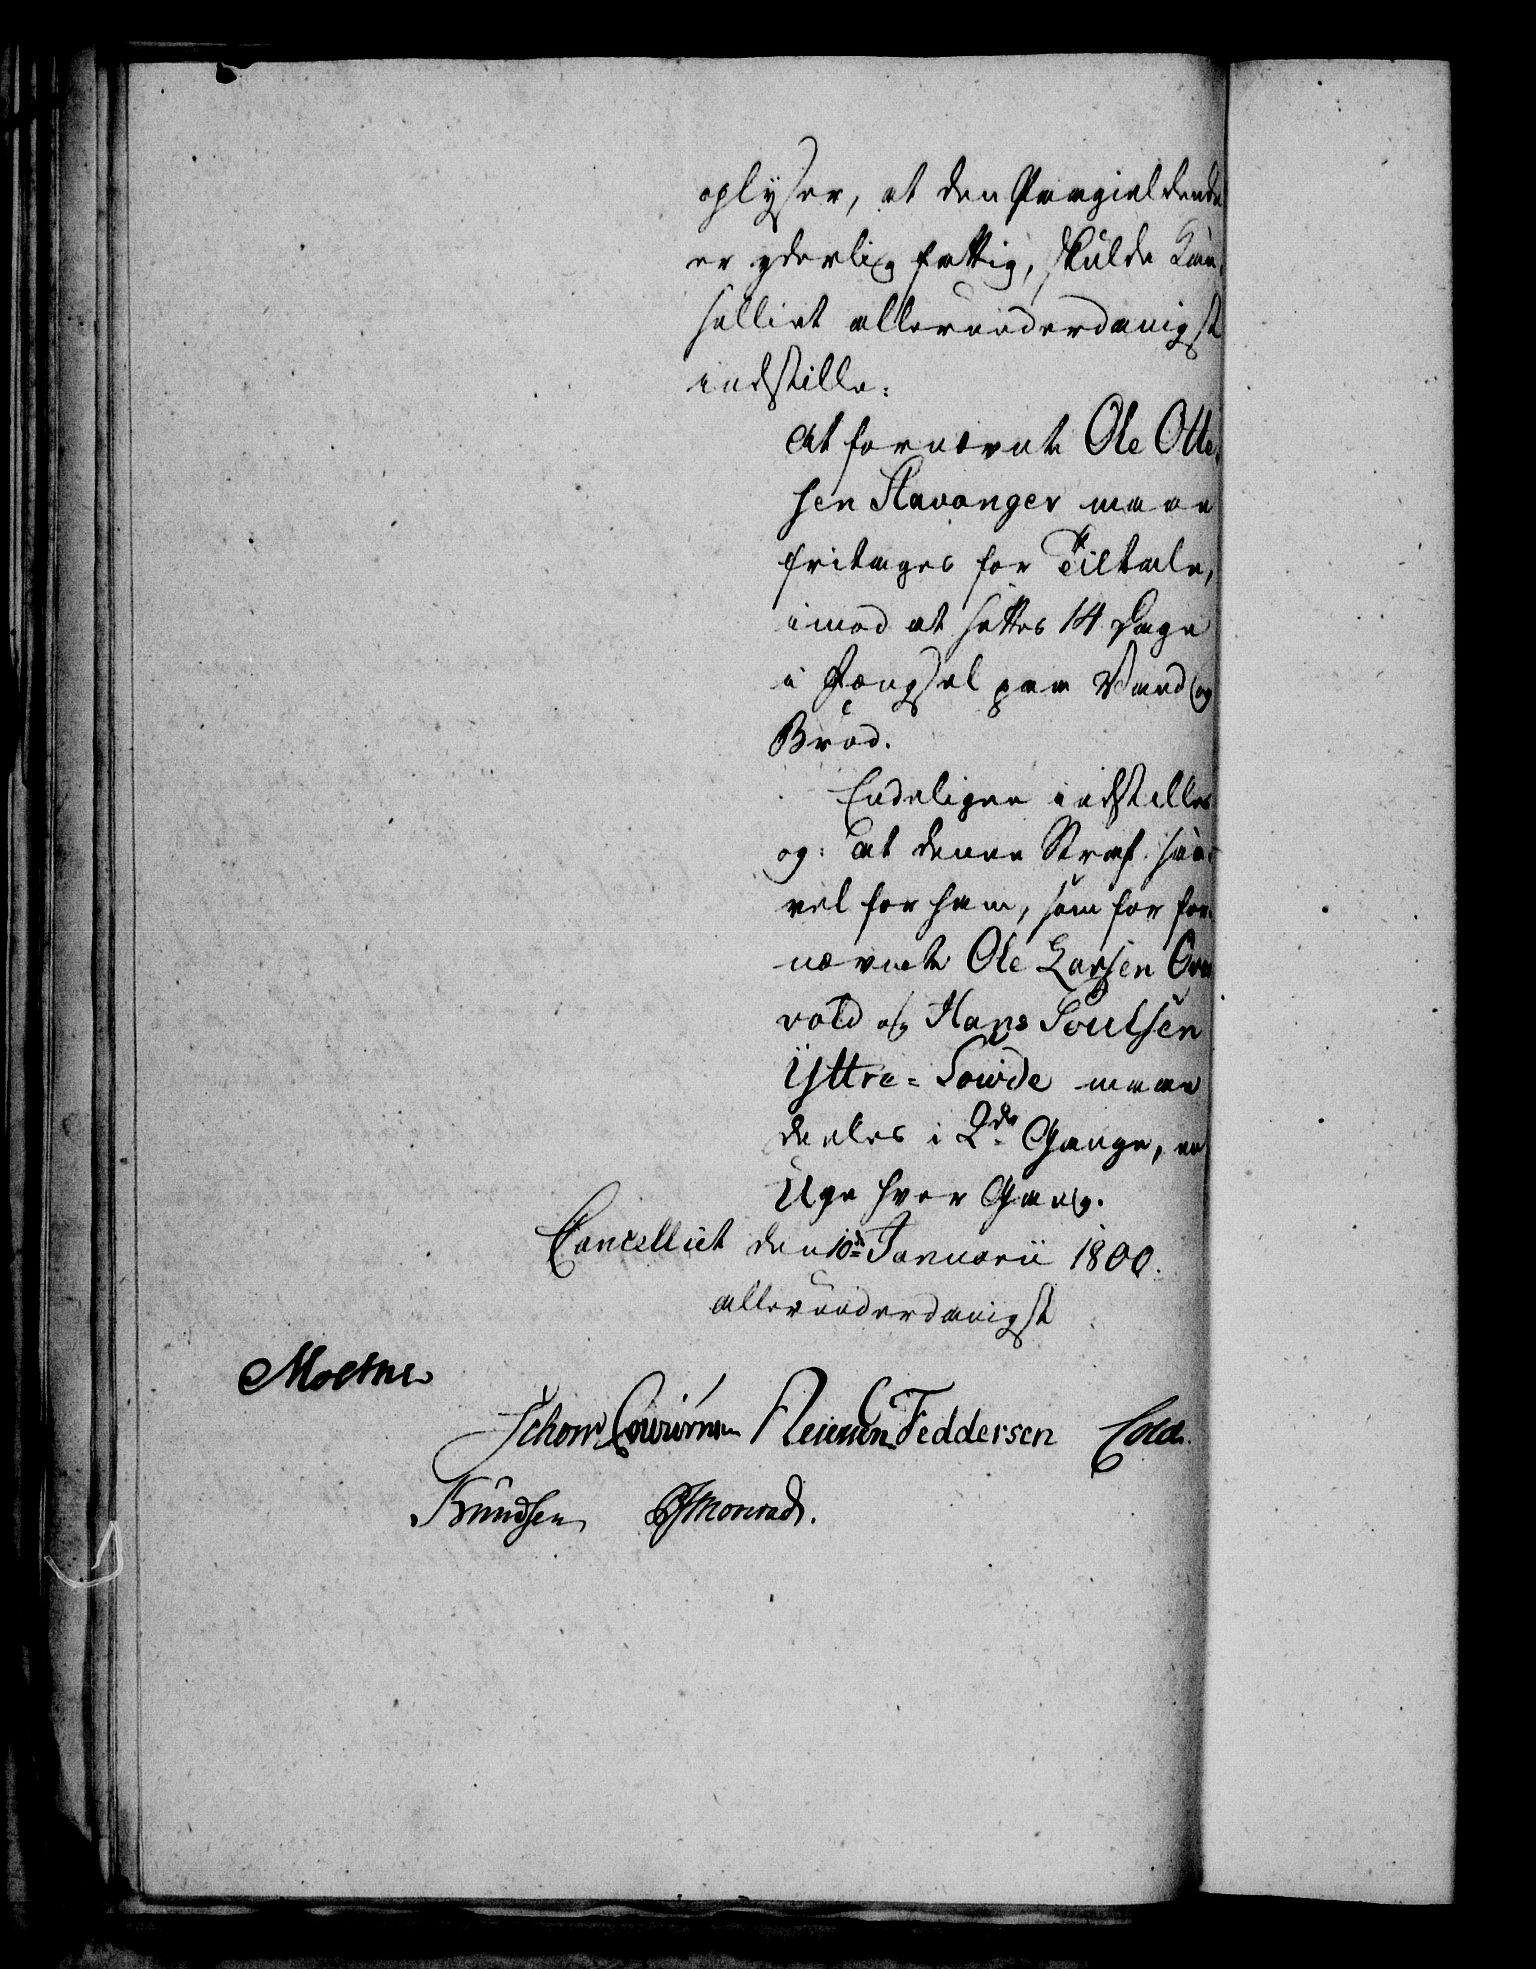 oplyser, at den Paagieldende
er yderlig fattig, skulde Can-
selliet allerunderdanigst
indstille:
at fornævnte Ole Otte-
sen Stavanger maae
fritages for Tiltale,
imod at settes 14 Dage
i Fængsel paa Vand og
Brød.
Endeligen indstilles
og: at denne Straf saa-
vel for ham, som for for-
nævnte Ole Larsen
vold og Hans Poulsen
Yttre-Sowde maae
deeles i 2de Gange, en
Uge hver Gang.
Cancelliet den 10de Januarii 1800.
allerunderdanigst
Moltke
Schow Feddersen Cold.
Knudsen Monrad.